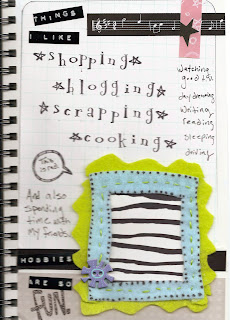 THINGS
I LIKE
shopping
blogging
scrapping
cooking
Watching
good dvds
day dreaming
Writing
reading
sleeping
driving
And also
spending
time with
my friends
HOBBIES
ARE SO
FUN.